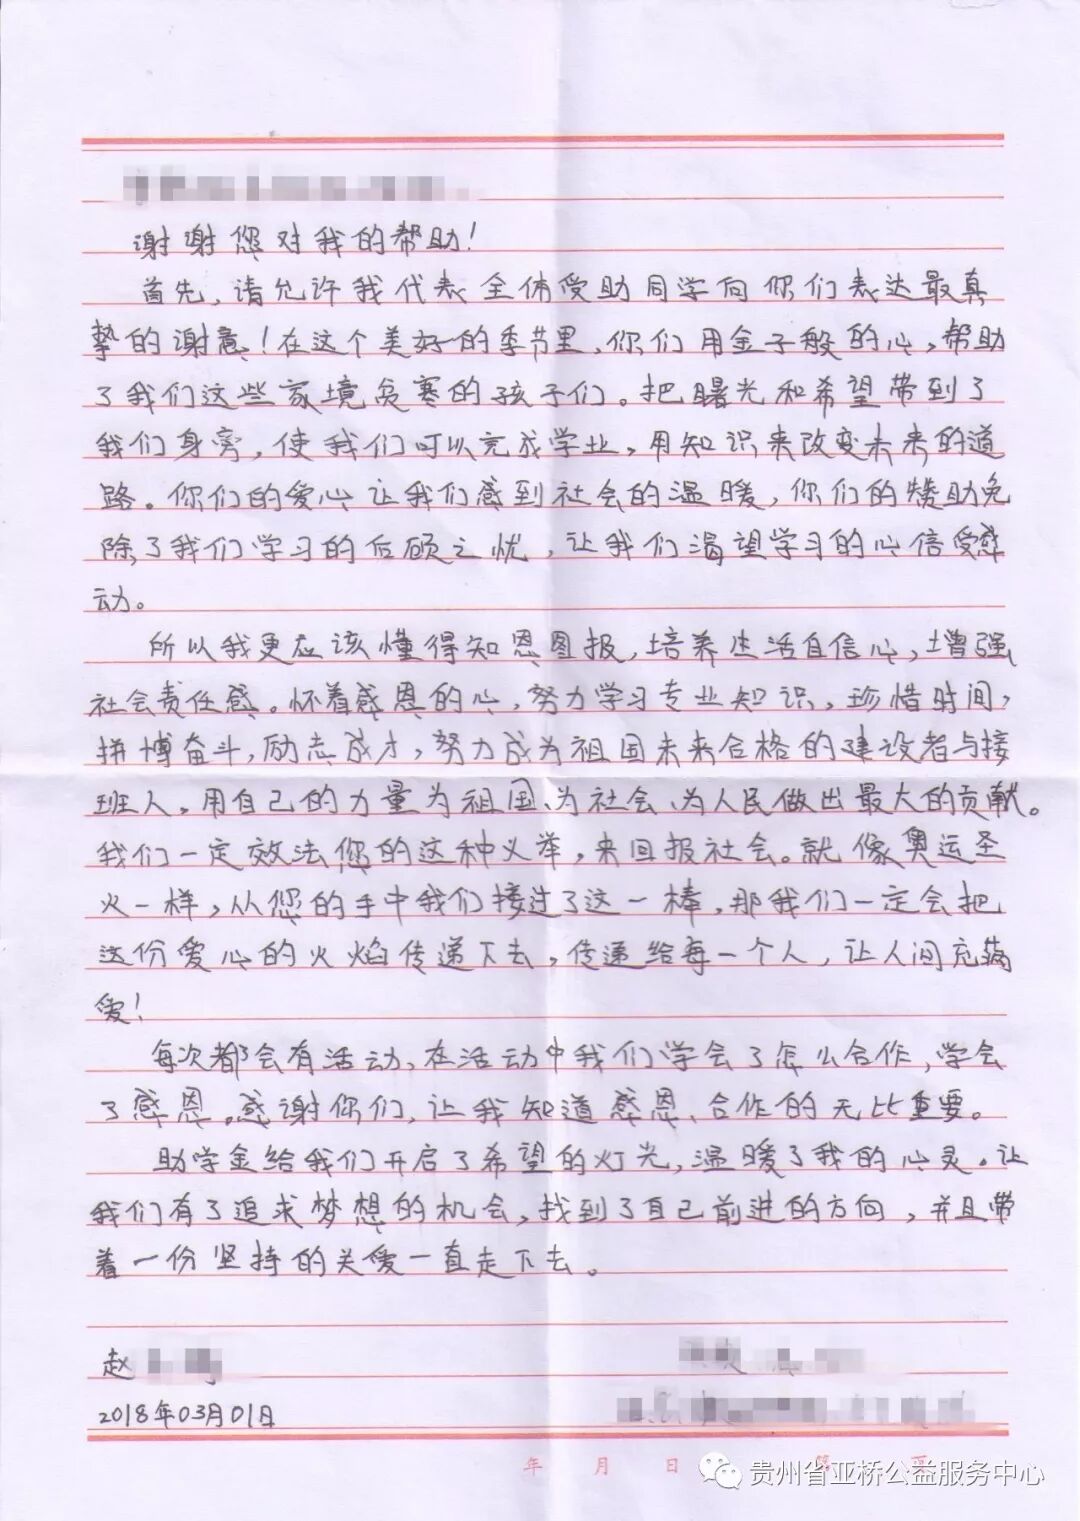 谢谢您对我的帮助！
首先，请允许我代表全体受助同学向你们表达最真
挚的谢意！在这个美好的季节里，你们用金子般的心，帮助
了我们这些家境贫寒的孩子们。把曙光和希望带到了
我们身旁，使我们可以完成学业，用知识来改变未来的道
路。你们的爱心让我们感到社会的温暖，你们的赞助免
除了我们学习的后顾之忧，让我们渴望学习的心倍受感
动。
所以我更应该懂得知恩图报，培养生活自信心，增强
社会责任感。怀着感恩的心，努力学习专业知识，珍惜时间，
拼博奋斗，励志成才，努力成为祖国未来合格的建设者与接
班人。用自己的力量为祖国、为社会、为人民做出最大的贡献。
我们一定效法您的这种义举，来回报社会。就像奥运圣
火一样，从您的手中我们接过了这一棒，那我们一定会把
这份爱心的火焰传递下去，传递给每一个人，让人间充满
爱！
每次都会有活动，在活动中我们学会了怎么合作，学会
了感恩。感谢你们，让我知道感恩、合作的无比重要。
助学金给我们开启了希望的灯光，温暖了我的心灵。让
我们有了追求梦想的机会，找到了自己前进的方向，并且带
着一份坚持的关爱一直走下去。
赵
2018年03月01日
年 月 日 第 页
贵州省亚桥公益服务中心